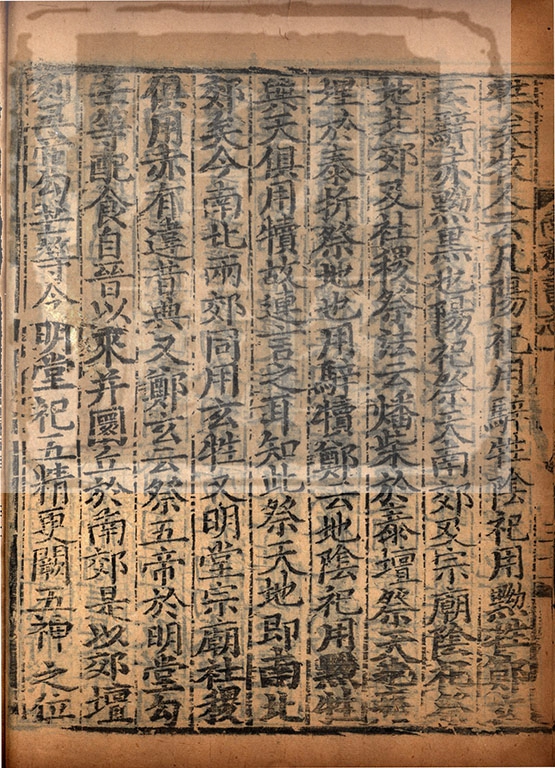 矣牧人云凡陽祀用騂牲陰祀用黝牲鄭玄
云騂赤黝黑也陽祀祭天南郊及宗廟陰祀祭
地北郊及社稷祭法云燔柴於泰壇祭天也瘞
埋於泰折祭地也用騂犢鄭云地陰祀用黝牲
與天俱用犢故連言之耳知此祭天地即南北
郊矣今南北兩郊同用玄牲又明堂宗廟社稷
俱用赤有違昔典又鄭玄云祭五帝於明堂勾
芒等配食自晉以來并圜丘於南郊是以郊壇
列五帝勾芒等今明堂祀五精更闕五神之位